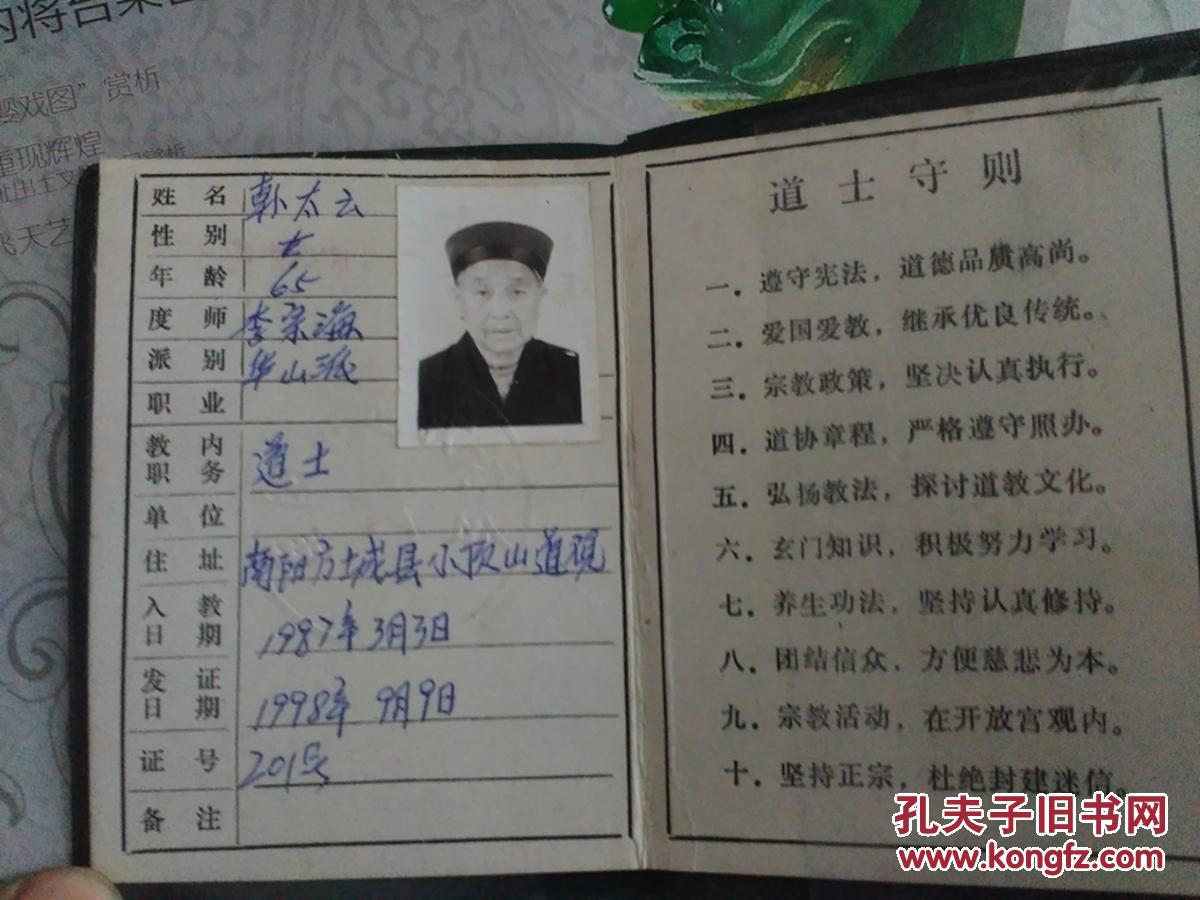 内将各案自
婴戏图”赏析
重现辉煌
飞天艺
姓名 郭太云
性别 女
年龄 65
度师 李宗海
派别 华山派
职业
教内职务 道士
单位
住址 南阳方城县小顶山道观
入教日期 1987年3月3日
发证日期 1998年9月9日
证号 201号
备注
道士守则
一．遵守宪法，道德品质高尚。
二．爱国爱教，继承优良传统。
三．宗教政策，坚决认真执行。
四．道协章程，严格遵守照办。
五．弘扬教法，探讨道教文化。
六．玄门知识，积极努力学习。
七．养生功法，坚持认真修持。
八．团结信众，方便慈悲为本。
九．宗教活动，在开放宫观内。
十．坚持正宗，杜绝封建迷信。
孔夫子旧书网
www.kongfz.com